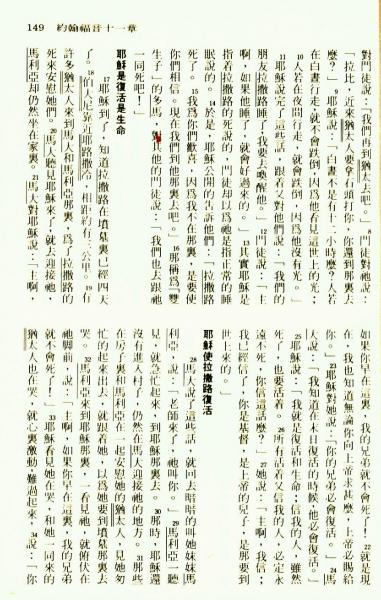 149　約翰福音十一章
對門徒說：「我們再到猶太去吧。」8 門徒對祂說：
「拉比，近來猶太人要拿石頭打你，你還到那裏去
麼？」9 耶穌說：「白晝不是有十二小時麼？人若
在白晝行走，就不會跌倒，因爲他看見這世上的光；
10 人若在夜間行走，就會跌倒，因爲他沒有光。」
11 耶穌說完了這些話，跟着又對他們說：「我們的
朋友拉撒路睡了，我要去喚醒他。」12 門徒說：「主
啊，如果他睡了，就會好過來的。」13 其實耶穌是
指着拉撒路的死說的，門徒却以爲祂是指正常的睡
眠說的。14 於是，耶穌公開的告訴他們：「拉撒路
死了。15 我爲你們歡喜，因爲我不在那裏，是要使
你們相信。現在我們到他那裏去吧。」16 那稱爲「雙
生子」的多馬，對其他的門徒說：「我們也去跟祂
一同死吧！」
耶穌是復活是生命
17 耶穌到了，知道拉撒路在墳墓裏已經四天
了。18 伯大尼靠近耶路撒冷，相距約有三公里。19 有
許多猶太人來到馬大和馬利亞那裏，爲了拉撒路的
死來安慰她們。20 馬大聽見耶穌來了，就去迎接祂，
馬利亞却仍然坐在家裏。21 馬大對耶穌說：「主啊，
如果你早在這裏，我的兄弟就不會死了！22 就是現
在，我也知道無論你向上帝求甚麼，上帝必賜給
你。」23 耶穌對她說：「你的兄弟必會復活。」24 馬
大說：「我知道在末日復活的時候，他必會復活。」
25 耶穌說：「我就是復活和生命；信我的人，雖然
死了，也要活着。26 所有活着又信我的人，必定永
遠不死，你信這話麼？」27 她說：「主啊，我信；
我已經信了，你是基督，是上帝的兒子，是那要到
世上來的。」
耶穌使拉撒路復活
28 馬大說了這些話，就回去暗暗的叫她妹妹馬
利亞，說：「老師來了，祂叫你。」29 馬利亞一聽
見，就急忙起來，到耶穌那裏去。30 那時，耶穌還
沒有進入村子，仍然在馬大迎接祂的地方。31 那些
在房子裏和馬利亞在一起安慰她的猶太人，見她匆
忙的起來出去，就跟着她，以爲她要到墳墓那裏去
哭。32 馬利亞來到耶穌那裏，一看見祂，就俯伏在
祂脚前，說：「主啊，如果你早在這裏，我的兄弟
就不會死了！」33 耶穌看見她在哭，和她一同來的
猶太人也在哭，就心裏激動，難過起來，34 說：「你